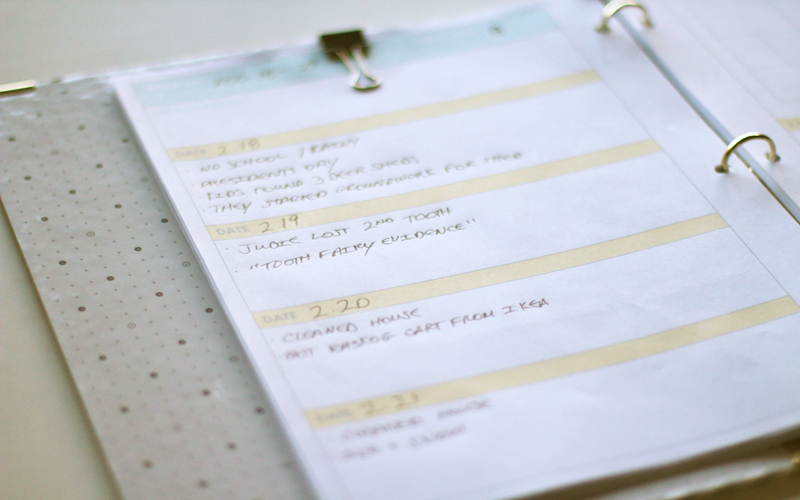 DATE 2.18
· NO SCHOOL /
· PRESIDENTS DAY
· KIDS FOUND 3 DEER SHEDS
· THEY STARTED GROUNDWORK FOR THEM
DATE 2.19
· JUDIE LOST 2ND TOOTH
· "TOOTH FAIRY EVIDENCE"
DATE 2.20
· CLEANED HOUSE
GOT RASKOG CART FROM IKEA
DATE 2.21
HOUSE